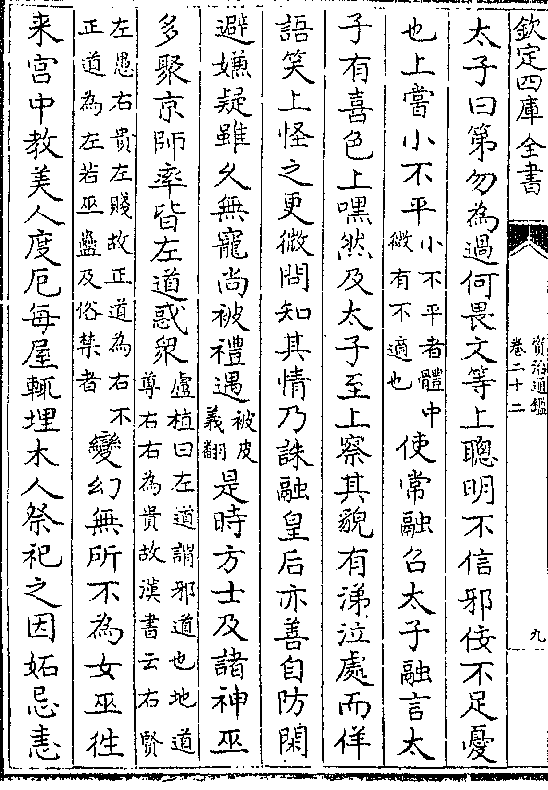 欽定四庫全書
資治通鑑
卷二十二
九
太子曰第勿為過何畏文等上聰明不信邪佞不足憂
也上嘗小不平小不平者體中
微有不適也使常融召太子融言太
子有喜色上嘿然及太子至上察其貌有涕泣處而佯
語笑上怪之更微問知其情乃誅融皇后亦善自防閑
避嫌疑雖久無寵尚被禮遇被皮
義翻是時方士及諸神巫
多聚京師率皆左道惑衆盧植曰左道謂邪道也地道
尊右右為貴故漢書云右賢
左愚右貴左賤故正道為右不
正道為左若巫蠱及俗禁者變幻無所不為女巫往
来宫中教美人度厄每屋輒埋木人祭祀之因妬忌恚